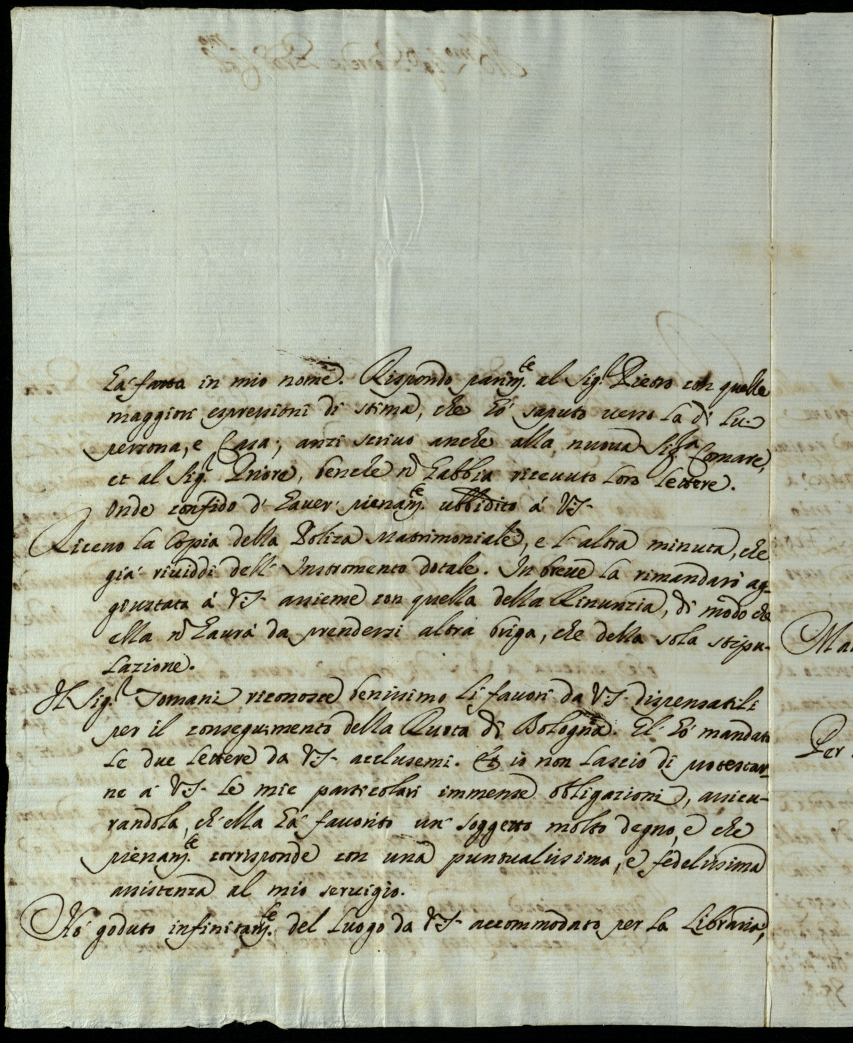 ha' fatta in mio nome. Rispondo parim.te al Sig.r Pietro con quelle
maggiori espressioni di stima, che hò saputo verso la di lui
persona, e Casa; anzi scrivo anche alla nuova Sig.ra Comare,
et al Sig.r Priore, benche nō habbia ricevuto loro lettere.
Onde confido d'haver pienam.te ubbidito á VS.
Ricevo la Copia della Poliza Matrimoniale, e l'altra minuta, che
giá rividdi dell'Instromento dotale. In breve la rimandarò ag-
giustata á VS. assieme con quella della Rinunzia, di modo che
ella nō haurá da prendersi altra briga, che della sola stipu-
lazione.
Il Sig.r Tomani riconosce benissimo li favori da VS. dispensatili
per il conseguimento della Ruota di Bologna. El hò mandato
le due lettere da VS. acclusemi. Et io non lascio di protestar-
ne á VS. le mie particolari immense obligazioni, assicu-
randola, ch'ella ha' favorito un' soggetto molto degno, e che
pienam.te corrisponde con una puntualissima, e fedelissima
assistenza al mio servigio.
Hò goduto infinitam.te del luogo da VS. accommodato per la Libraria,
Per